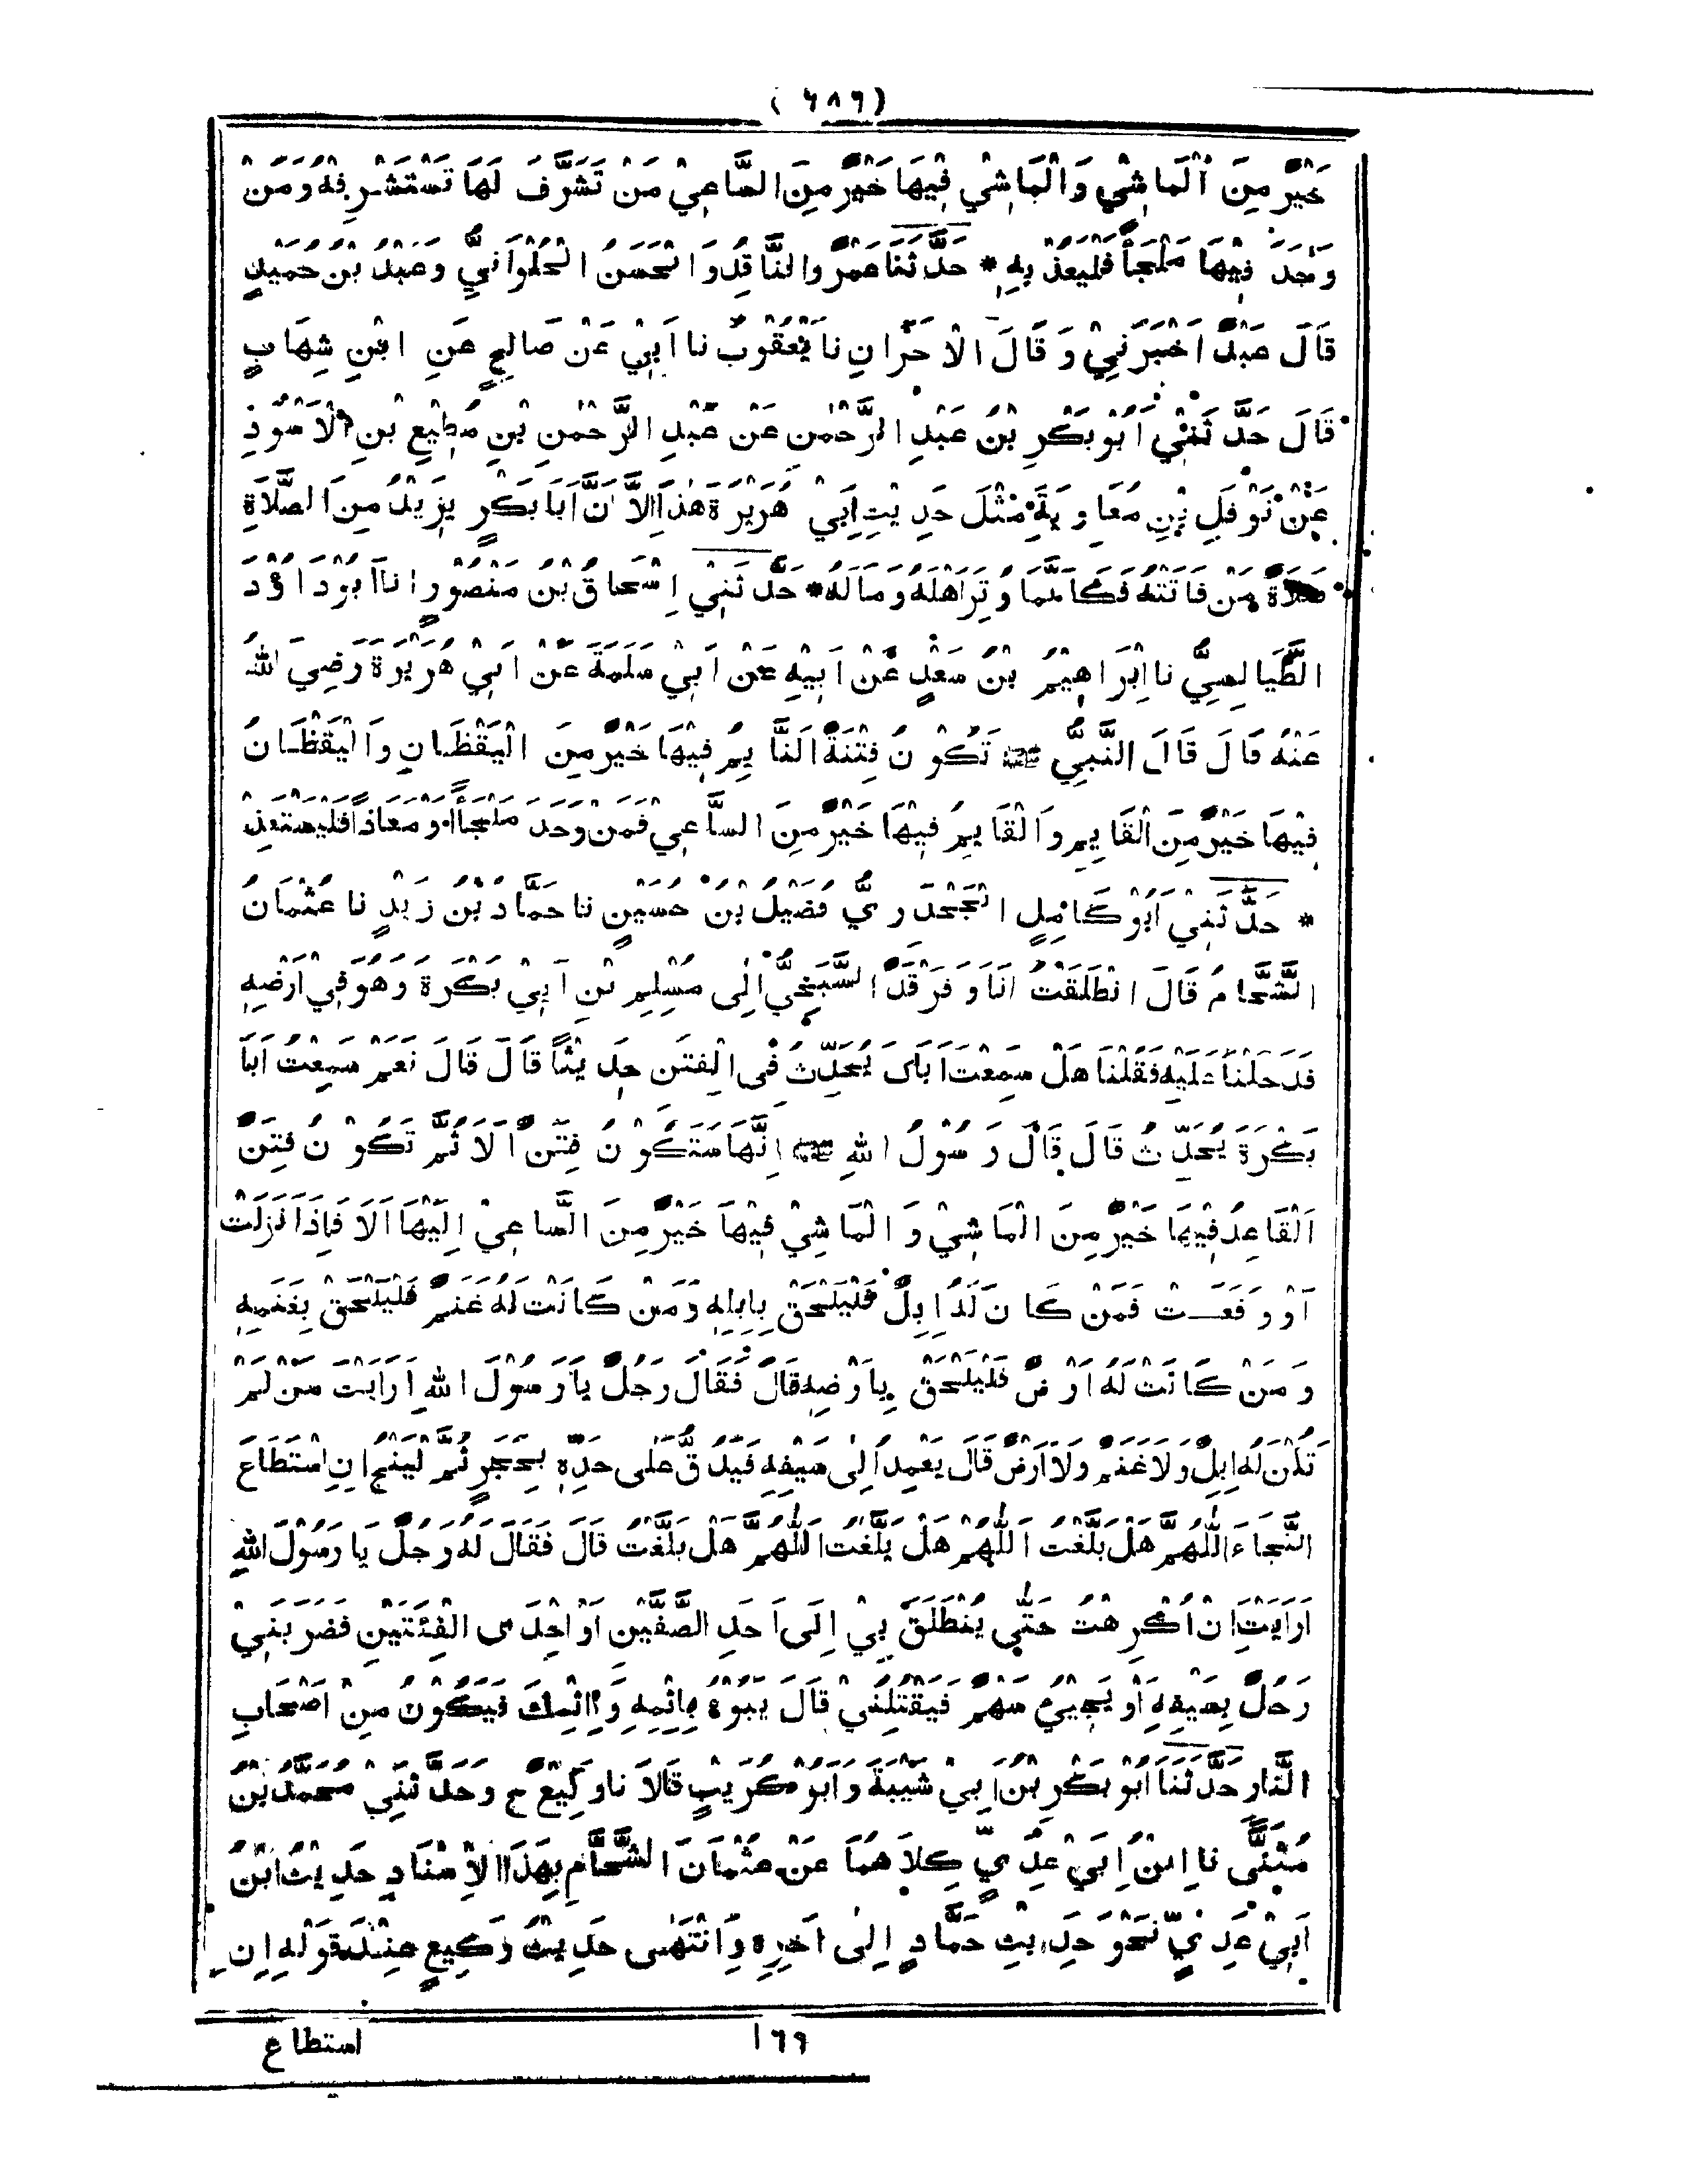 (٦٨٦)
خَيْرٌ مِنَ الْمَاشِيْ وَالْمَاشِيْ فِيْهَا خَيْرٌ مِنَ السَّاعِيْ مَنْ تَشَرَّفَ لَهَا تَسْتَشْرِفْهُ وَمَنْ
وَجَدَ فِيْهَا مَلْجَأً فَلْيَعُذْ بِهِ * حَدَّثَنَا عَمْرٌو النَّاقِدُ وَالْحَسَنُ الْحُلْوَانِيُّ وَعَبْدُ بْنُ حُمَيْدٍ
قَالَ عَبْدٌ اَخْبَرَنِيْ وَ قَالَ الْاٰخَرَانِ نَا يَعْقُوْبُ نَا اَبِيْ عَنْ صَالِحٍ عَنِ ابْنِ شِهَابٍ
قَالَ حَدَّثَنِيْ اَبُوْ بَكْرِ بْنُ عَبْدِ الرَّحْمٰنِ عَنْ عَبْدِ الرَّحْمٰنِ بْنِ مُطِيْعِ بْنِ الْاَسْوَدِ
عَنْ نَوْفَلِ بْنِ مُعَاوِيَةَ مِثْلَ حَدِيْثِ اَبِيْ هُرَيْرَةَ هٰذَا اِلَّا اَنَّ اَبَا بَكْرٍ يَزِيْدُ مِنَ الصَّلَاةِ
صَلَاةٌ مَنْ فَاتَتْهُ فَكَاَنَّمَا وُتِرَ اَهْلَهُ وَمَالَهُ * حَدَّثَنِيْ اِسْحَاقُ بْنُ مَنْصُوْرٍ انا اَبُوْ دَاوُدَ
الطَّيَالِسِيُّ نا اِبْرَاهِيْمُ بْنُ سَعْدٍ عَنْ اَبِيْهِ عَنْ اَبِيْ سَلَمَةَ عَنْ اَبِيْ هُرَيْرَةَ رَضِيَ اللهُ
عَنْهُ قَالَ قَالَ النَّبِيُّ ﷺ تَكُوْنُ فِتْنَةٌ اَلنَّايِمُ فِيْهَا خَيْرٌ مِنَ الْيَقْظَانِ وَالْيَقْظَانُ
فِيْهَا خَيْرٌ مِنَ الْقَايِمِ وَالْقَايِمُ فِيْهَا خَيْرٌ مِنَ السَّاعِيْ فَمَنْ وَجَدَ مَلْجَأً اَوْ مَعَاذًا فَلْيَسْتَعِذْ
* حَدَّثَنِيْ اَبُوْ كَامِلٍ الْجَحْدَرِيُّ فُضَيْلُ بْنُ حُسَيْنٍ نا حَمَّادُ بْنُ زَيْدٍ نا عُثْمَانُ
الشَّحَّامُ قَالَ انْطَلَقْتُ اَنَا وَ فَرْقَدٌ السَّبَخِيُّ اِلٰى مُسْلِمِ بْنِ اَبِيْ بَكْرَةَ وَهُوَ فِيْ اَرْضِهِ
فَدَخَلْنَا عَلَيْهِ فَقُلْنَا هَلْ سَمِعْتَ اَبَاكَ يُحَدِّثُ فِى الْفِتَنِ حَدِيْثًا قَالَ قَالَ نَعَمْ سَمِعْتُ اَبَا
بَكْرَةَ يُحَدِّثُ قَالَ قَالَ رَسُوْلُ اللهِ ﷺ اِنَّهَا سَتَكُوْنُ فِتَنٌ اَلَا ثُمَّ تَكُوْنُ فِتَنٌ
اَلْقَاعِدُ فِيْهَا خَيْرٌ مِنَ الْمَاشِيْ وَ الْمَاشِيْ فِيْهَا خَيْرٌ مِنَ السَّاعِيْ اِلَيْهَا اَلَا فَاِذَا نَزَلَتْ
اَوْ وَقَعَتْ فَمَنْ كَانَ لَهُ اِبِلٌ فَلْيَلْحَقْ بِاِبِلِهِ وَمَنْ كَانَتْ لَهُ غَنَمٌ فَلْيَلْحَقْ بِغَنَمِهِ
وَ مَنْ كَانَتْ لَهُ اَرْضٌ فَلْيَلْحَقْ بِاَرْضِهِ قَالَ فَقَالَ رَجُلٌ يَا رَسُوْلَ اللهِ اَرَاَيْتَ مَنْ لَمْ
تَكُنْ لَهُ اِبِلٌ وَلَا غَنَمٌ وَلَا اَرْضٌ قَالَ يَعْمِدُ اِلٰى سَيْفِهِ فَيَدُقُّ عَلٰى حَدِّهِ بِحَجَرٍ ثُمَّ لْيَنْجُ اِنِ اسْتَطَاعَ
النَّجَاءَ اَللّٰهُمَّ هَلْ بَلَّغْتُ اَللّٰهُمَّ هَلْ بَلَّغْتُ اَللّٰهُمَّ هَلْ بَلَّغْتُ قَالَ فَقَالَ لَهُ رَجُلٌ يَا رَسُوْلَ اللهِ
اَرَاَيْتَ اِنْ اُكْرِهْتُ حَتّٰى يُنْطَلَقَ بِيْ اِلَى اَحَدِ الصَّفَّيْنِ اَوْ اِحْدَى الْفِئَتَيْنِ فَضَرَبَنِيْ
رَجُلٌ بِسَيْفِهِ اَوْ يَجِيْئُ سَهْمٌ فَيَقْتُلُنِيْ قَالَ يَبُوْءُ بِاِثْمِهِ وَ اِثْمِكَ فَيَكُوْنُ مِنْ اَصْحَابِ
النَّارِ حَدَّثَنَا اَبُوْ بَكْرِ بْنُ اَبِيْ شَيْبَةَ وَ اَبُوْ كُرَيْبٍ قَالَا نا وَكِيْعٌ ح وَ حَدَّثَنِيْ مُحَمَّدُ بْنُ
مُثَنًّى نا ابْنُ اَبِيْ عَدِيٍّ كِلَاهُمَا عَنْ عُثْمَانَ الشَّحَّامِ بِهَذَا الْاِسْنَادِ حَدِيْثُ ابْنِ
اَبِيْ عَدِيٍّ نَحْوَ حَدِيْثِ حَمَّادٍ اِلٰى اٰخِرِهِ وَانْتَهٰى حَدِيْثُ وَكِيْعٍ عِنْدَ قَوْلِهِ اِنِ
١٦٩
استطاع